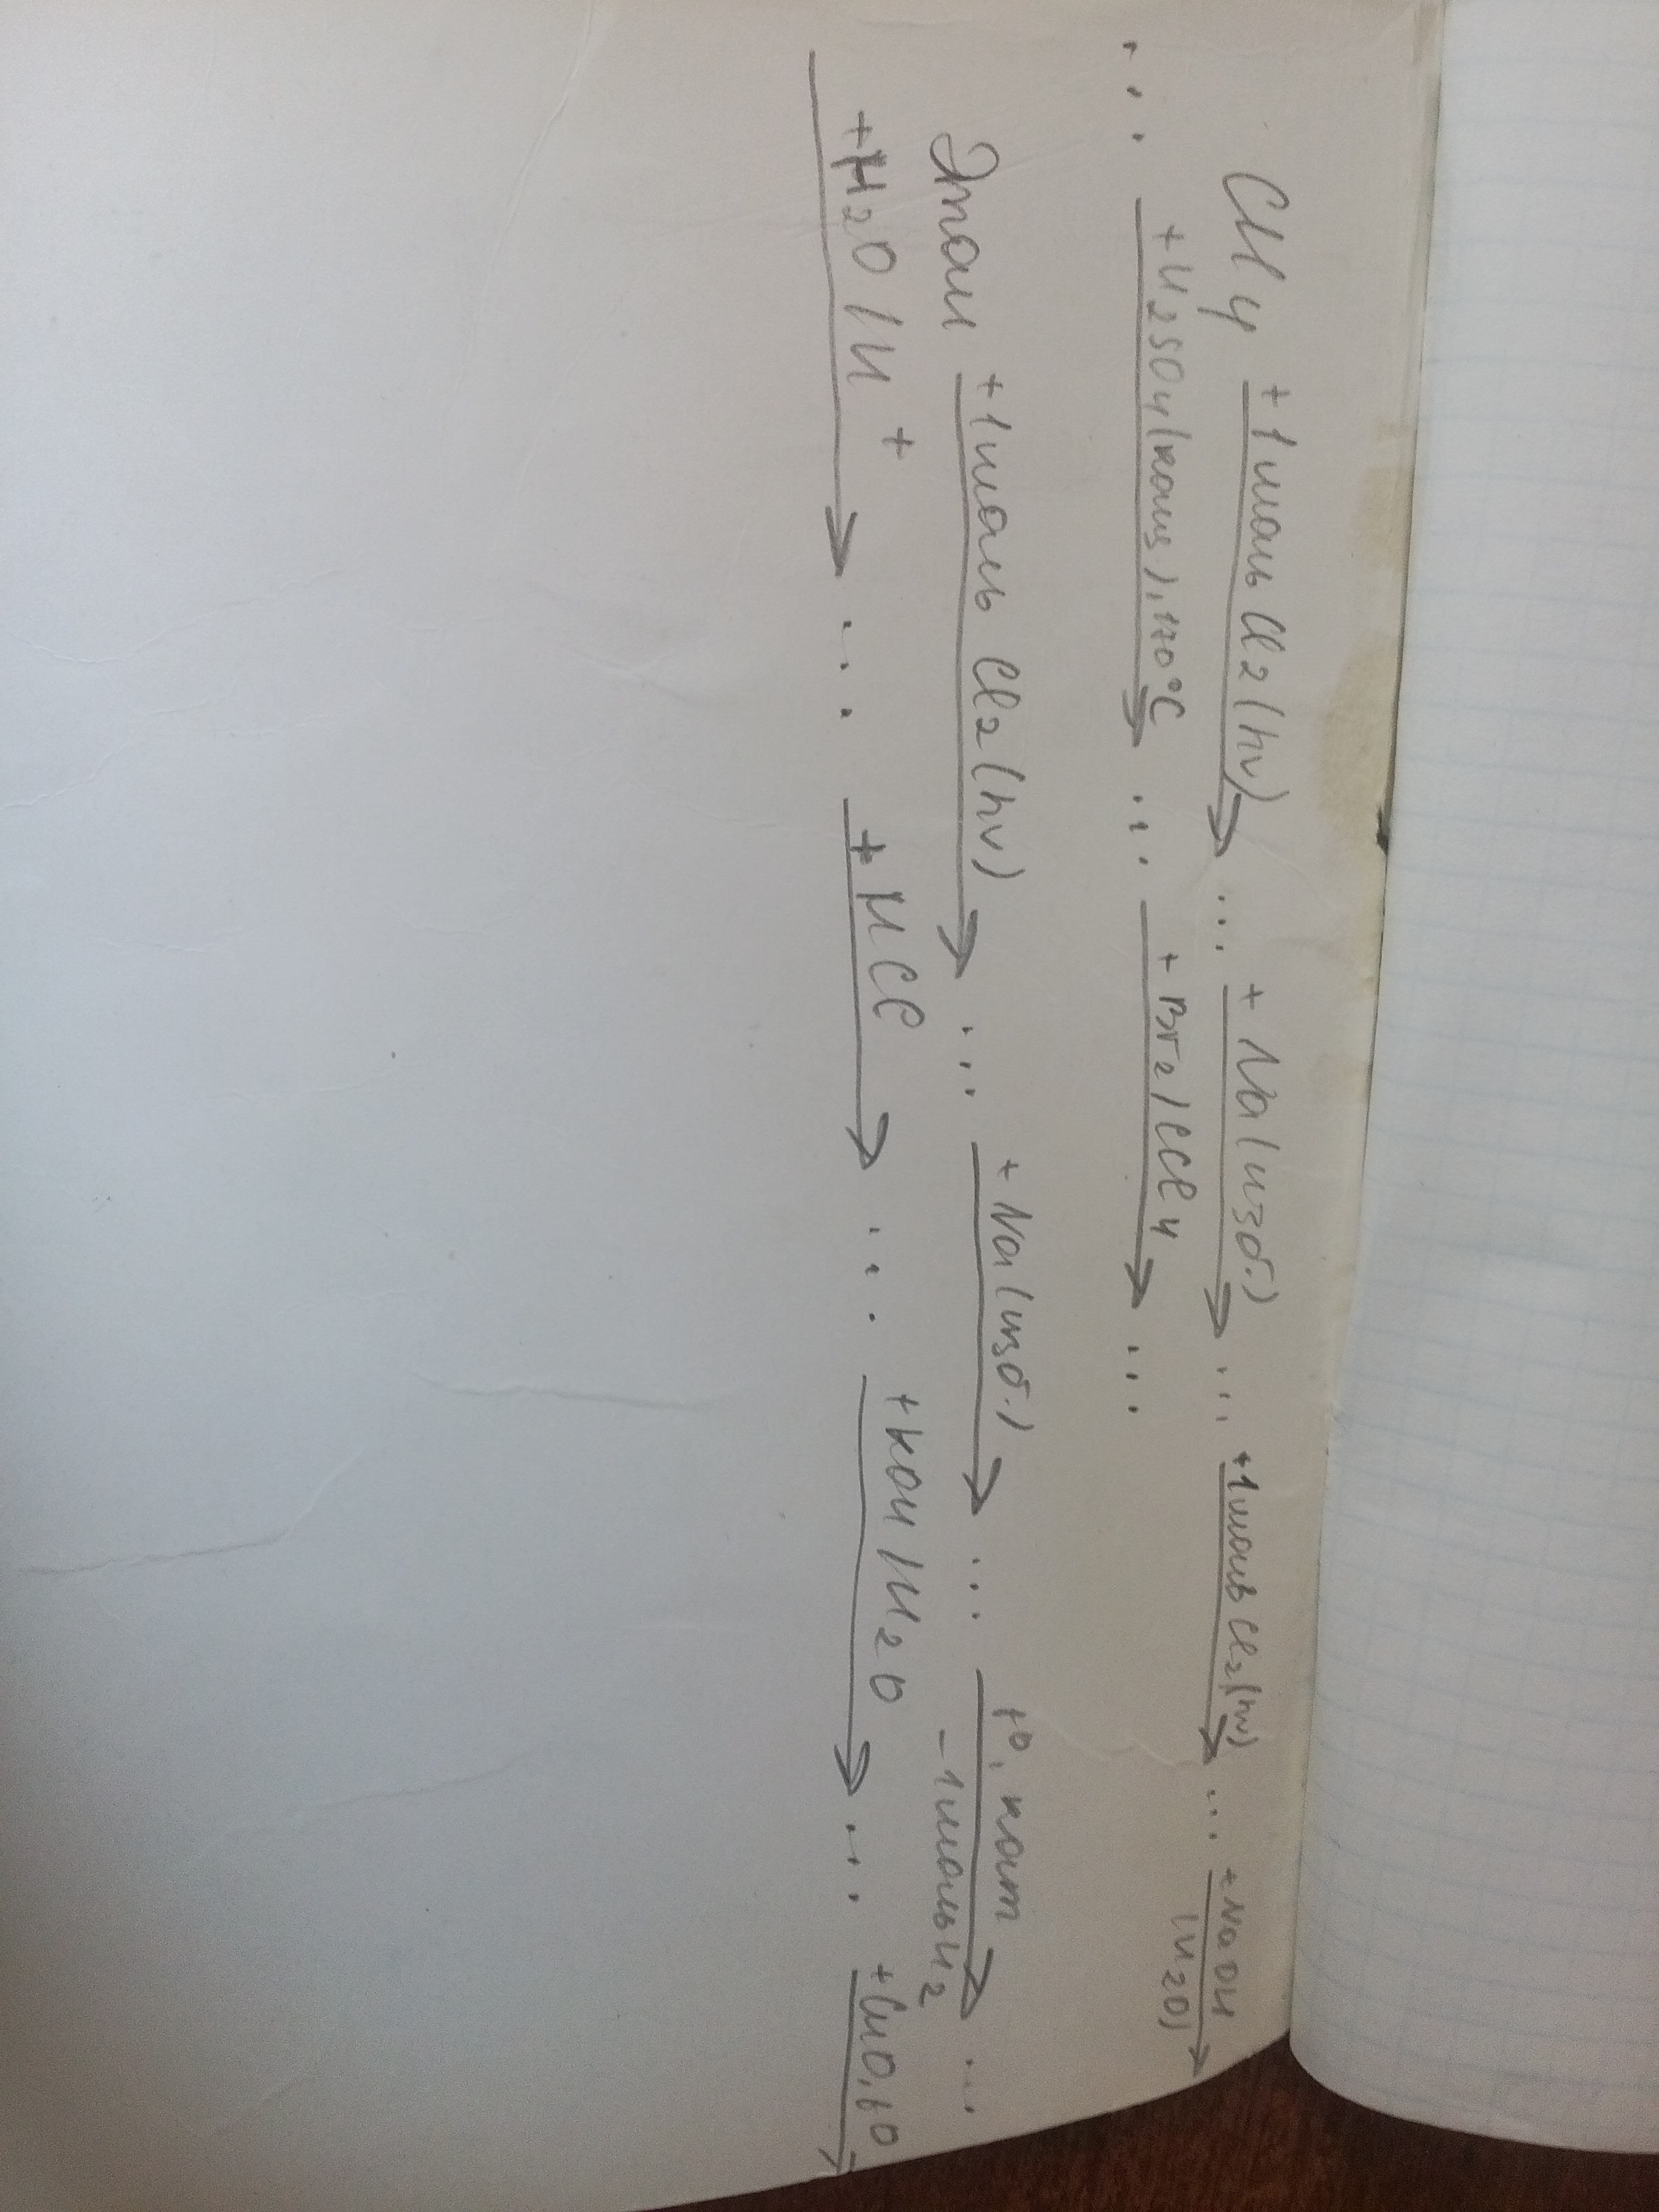 CH4 +1моль Cl2(hν) → ... +Na(изб.) → ... +1моль Cl2(hν) → ... +NaOH (H2O) →
... +H2SO4(конц), 170°C → ... +Br2/CCl4 → ...
Этан +1моль Cl2(hν) → ... +Na(изб.) → ... t°, кат -1моль H2 → ...
+H2O/H+ → ... +HCl → ... +KOH/H2O → ... +CuO, t° →